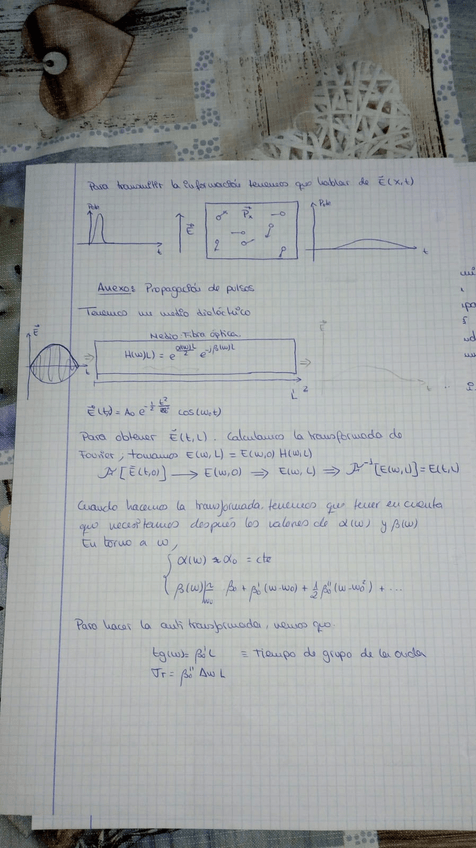 CORAZON
Para transmitir la información tenemos que hablar de E⃗(x,t)
Pote
E⃗
P⃗
t
Pote
t
Anexo: Propagación de pulsos
Tenemos un medio dieléctrico
E⃗
Medio Fibra óptica
H(w)L) = e^{α(w)L/2} e^{-jβ(w)L}
t
L
z
E⃗(t) = A₀ e^{-½ t²/} cos(w₀t)
Para obtener E⃗(t,L). Calculamos la transformada de
Fourier, tomamos E(w,L) = E(w,0) H(w)
[E⃗(t,0)] → E(w,0) ⇒ E(w,L) ⇒ ⁻¹[E(w,L)] = E(t,L)
Cuando hacemos la transformada, tenemos que tener en cuenta
que necesitamos después los valores de α(w) y β(w)
En torno a w,
α(w) ≈ α₀ = cte
β(w)|≃ β₀ + β₀'(w-w₀) + ½β₀''(w-w₀² + ...
w₀
Para hacer la antitransformada, vemos que.
tg(w) = β₀'L ≡ Tiempo de grupo de la onda
σr = β₀'' Δw L